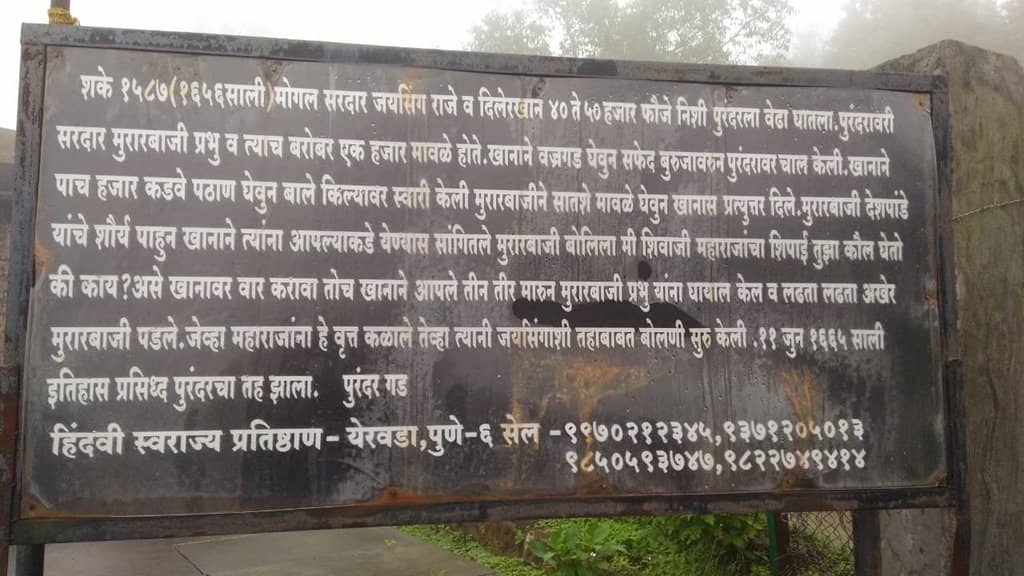 शके १५८७(१६५६साली)मोगल सरदार जयसिंग राजे व दिलेरखान ४० ते ५० हजार फौजे निशी पुरंदरला वेढा घातला.पुरंदरावरी
सरदार मुरारबाजी प्रभु व त्याच बरोबर एक हजार मावळे होते.खानाने वज्रगड घेवुन सफेद बुरुजावरुन पुरंदरावर चाल केली.खानाने
पाच हजार कडवे पठाण घेवुन बाले किल्यावर स्वारी केली मुरारबाजीने सातशे मावळे घेवुन खानास प्रत्युत्तर दिले.मुरारबाजी देशपांडे
यांचे शौर्य पाहुन खानाने त्यांना आपल्याकडे येण्यास सांगितले मुरारबाजी बोलिला मी शिवाजी महाराजांचा शिपाई तुझा कौल घेतो
की काय?असे खानावर वार करावा तोच खानाने आपले तीन तीर मारुन मुरारबाजी प्रभु यांना घायाल केल व लढता लढता अखेर
मुरारबाजी पडले.जेव्हा महाराजांना हे वृत्त कळाले तेव्हा त्यानी जयसिंगाशी तहाबाबत बोलणी सुरु केली .११ जुन १६६५ साली
इतिहास प्रसिध्द पुरंदरचा तह झाला. पुरंदर गड
हिंदवी स्वराज्य प्रतिष्ठाण-येरवडा,पुणे-६ सेल -९९७०२१२३४५,९३७१२०५०१३
९८५०५९३७४७,९८२२७४९४१४